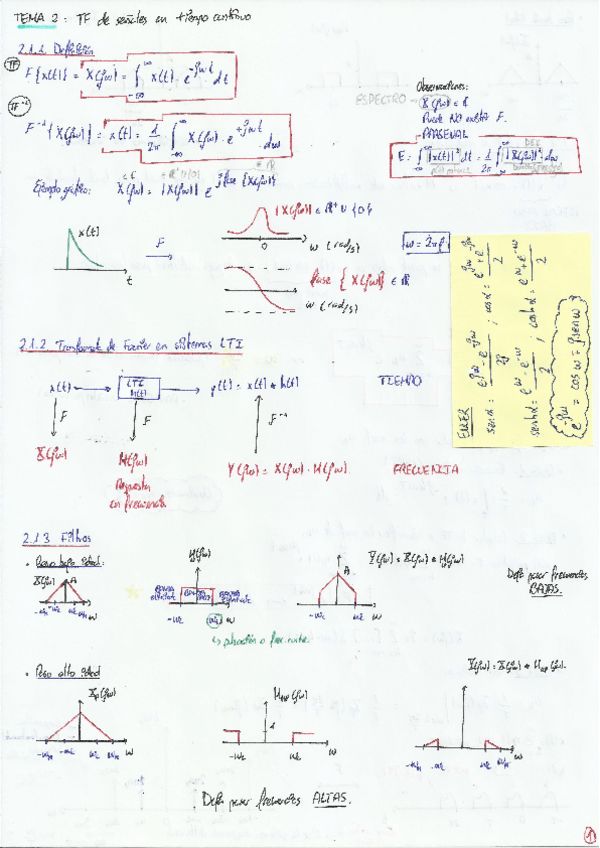 TEMA 2: TF de señales en tiempo continuo
2.1.1 Definición
TF
F{x(t)} = X(jω) = ∫_{-∞}^{∞} x(t) · e^{-jωt} dt
TF⁻¹
F⁻¹{X(jω)} = x(t) = 1/2π ∫_{-∞}^{∞} X(jω) · e^{+jωt} · dω
ESPECTRO
Observaciones:
X(jω) ∈ ℂ
Puede NO existir F.
PARSEVAL
E = ∫_{-∞}^{∞} |x(t)|² dt = 1/2π ∫_{-∞}^{∞} |X(jω)|² dω
DEE
Ejemplo gráfico: X(jω) = |X(jω)| e^{j fase{X(jω)}}
∈ ℂ ∈ ℝ⁺ ∪ {0} ∈ ℝ
x(t)
F
t
|X(jω)| ∈ ℝ⁺ ∪ {0}
0
ω (rad/s)
ω = 2πf
fase {X(jω)} ∈ ℝ
ω (rad/s)
EULER
senα = (e^{jω} - e^{-jω})/2j ; cosα = (e^{jω} + e^{-jω})/2
senhα = (e^{ω} - e^{-ω})/2 ; coshα = (e^{ω} + e^{-ω})/2
{e^{-jω} = cosω - jsenω}
2.1.2 Transformada de Fourier en sistemas LTI
x(t) → LTI h(t) → y(t) = x(t) * h(t) TIEMPO
F F F⁻¹
X(jω) H(jω) Y(jω) = X(jω) · H(jω) FRECUENCIA
Respuesta
en frecuencia
2.1.3 Filtros
• Paso bajo ideal:
X(jω) A
-ωM -ωc ωc ωM ω
H(jω)
BANDA BANDA BANDA
-ωc ωc ω
A
-ωc ωc ω
Y(jω) = X(jω) · H(jω)
Deja pasar frecuencias
BAJAS.
↳ pulsación o frec. corte.
• Paso alto ideal
Xp(jω)
-ωM -ωc ωc ωM ω
Hhp(jω)
1
-ωc ωc ω
Y(jω) = X(jω) · Hhp(jω).
-ωM -ωc ωc ωM ω
Deja pasar frecuencias ALTAS.
1